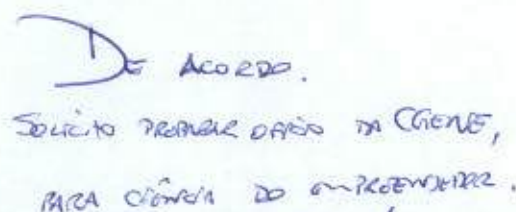 De acordo.
Solicito preparar ofício da CGENE,
para ciência do empreendedor.